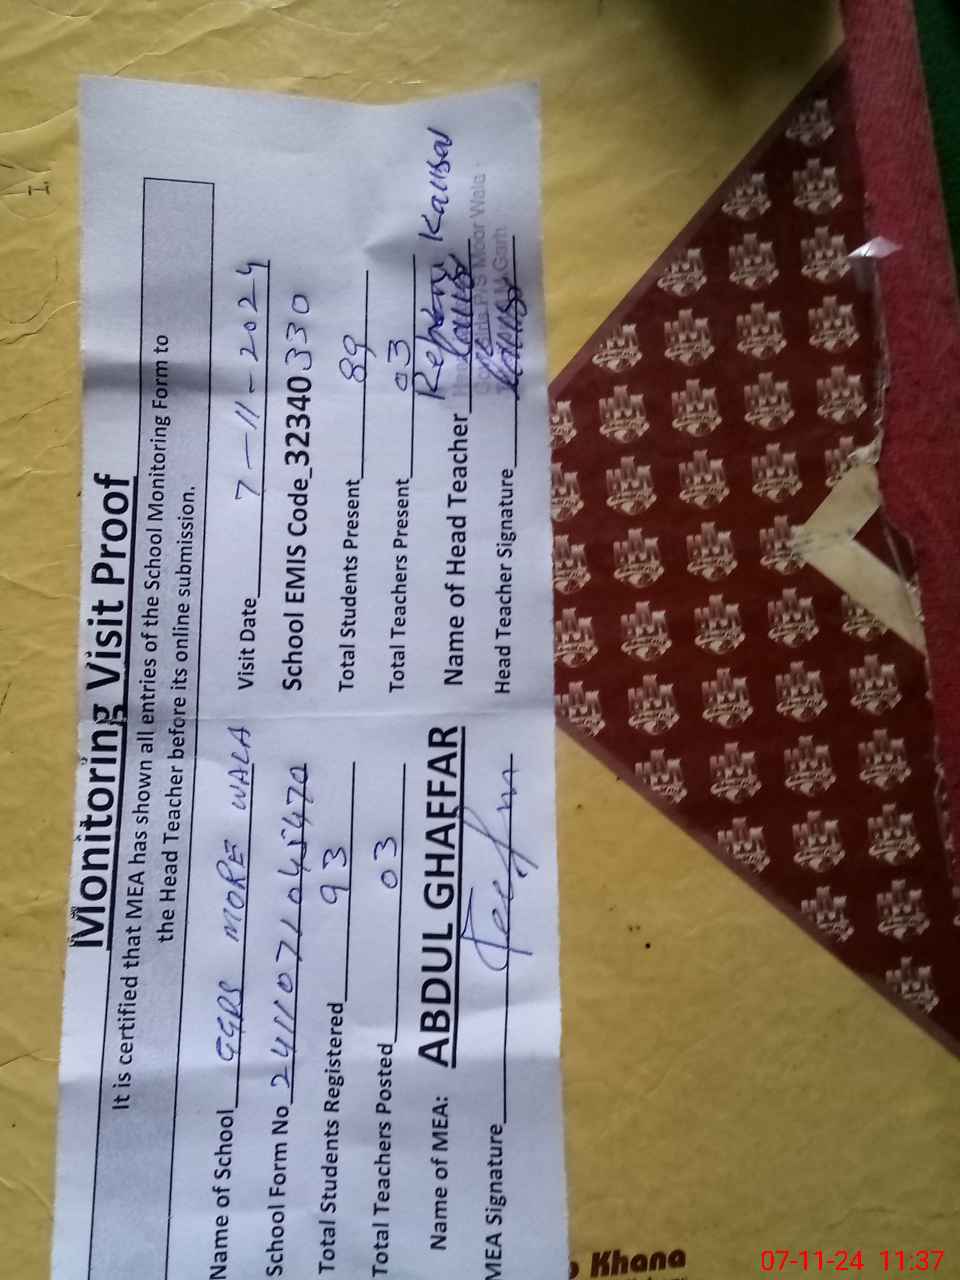 Monitoring Visit Proof
It is certified that MEA has shown all entries of the School Monitoring Form to
the Head Teacher before its online submission.
Name of School GGPS MORE WALA Visit Date 7-11-2024
School Form No 24110710 School EMIS Code 32340330
Total Students Registered 93 Total Students Present 89
Total Teachers Posted 03 Total Teachers Present 03
Name of MEA: ABDUL GHAFFAR Name of Head Teacher Kausar
MEA Signature Head Teacher Signature
Moor Wala
M.Garh
Khana
07-11-24 11:37